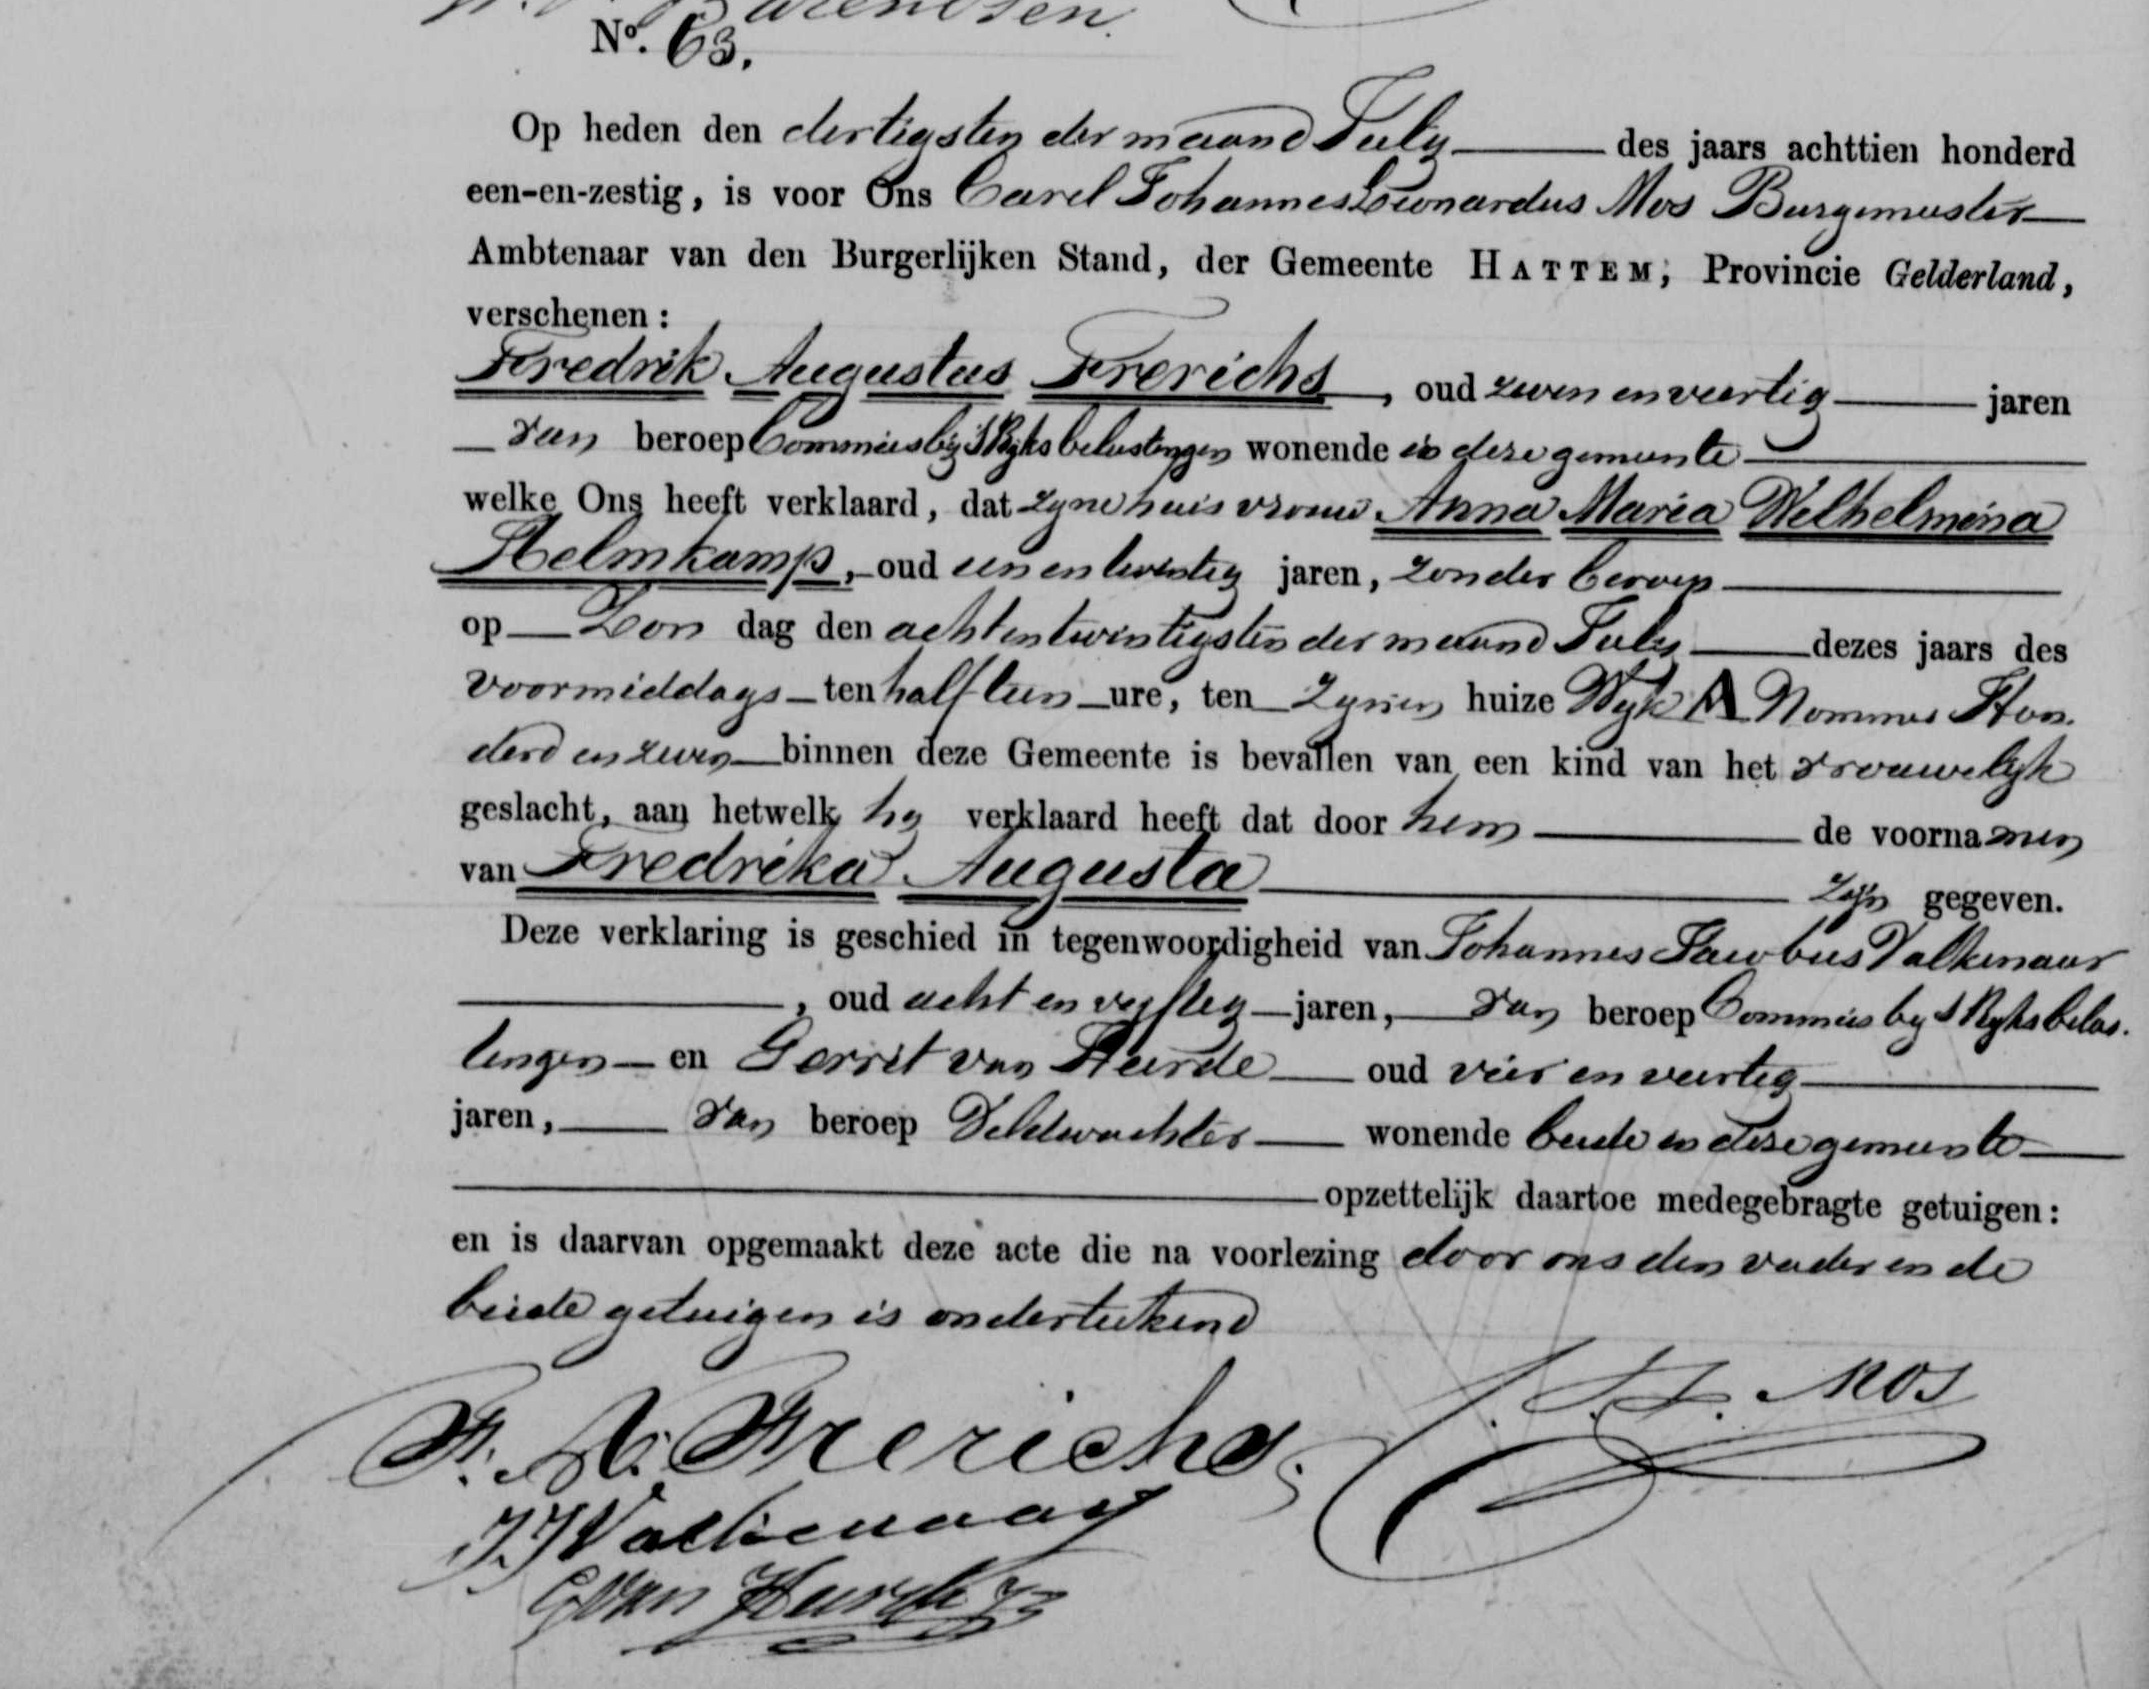 Barendsen.
No. 63.
Op heden den dertigsten der maand July des jaars achttien honderd
een-en-zestig, is voor Ons Carel Johannes Leonardus Mos Burgemeester
Ambtenaar van den Burgerlijken Stand, der Gemeente HATTEM, Provincie Gelderland,
verschenen:
Fredrik Augustus Frerichs, oud zeven en veertig jaren
van beroep Commies by 's Ryks belastingen wonende in deze gemeente
welke Ons heeft verklaard, dat zyne huisvrouw Anna Maria Wilhelmina
Helmkamp, oud een en twintig jaren, zonder beroep
op Zon dag den achtentwintigsten der maand July dezes jaars des
voormiddags ten half tien ure, ten zynen huize Wyk A Nommer Hon
derd en zeven binnen deze Gemeente is bevallen van een kind van het vrouwelyk
geslacht, aan hetwelk hy verklaard heeft dat door hem de voornamen
van Fredrika Augusta zyn gegeven.
Deze verklaring is geschied in tegenwoordigheid van Johannes Jacobus Valkenaar
, oud acht en vyftig jaren, van beroep Commies by 's Ryks belas.
tingen en Gerrit van Heerde oud vier en veertig
jaren, van beroep Veldwachter wonende beide in deze gemeente
opzettelijk daartoe medegebragte getuigen:
en is daarvan opgemaakt deze acte die na voorlezing door ons den vader en de
beide getuigen is onderteekend
F. A. Frerichs. Mos
J. J. Valkenaar
G van Heerde